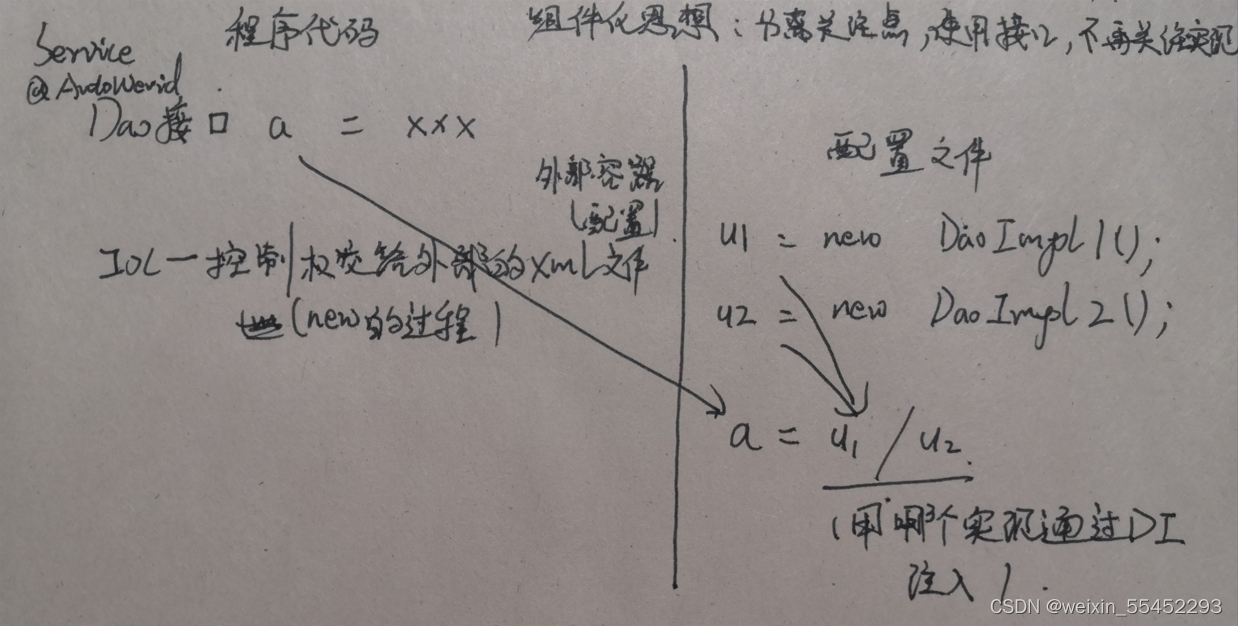 程序代码
组件化思想：分离关注点，使用接口，不再关注实现
Service
@AutoWerid
Dao接口 a = xxx
外部容器
(配置)
IOC一控制权交给外部的xml文件
(new的过程)
配置文件
u1 = new DaoImpl1();
u2 = new DaoImpl2();
a = u1 / u2.
(用哪个实现通过DI
注入).
CSDN @weixin_55452293